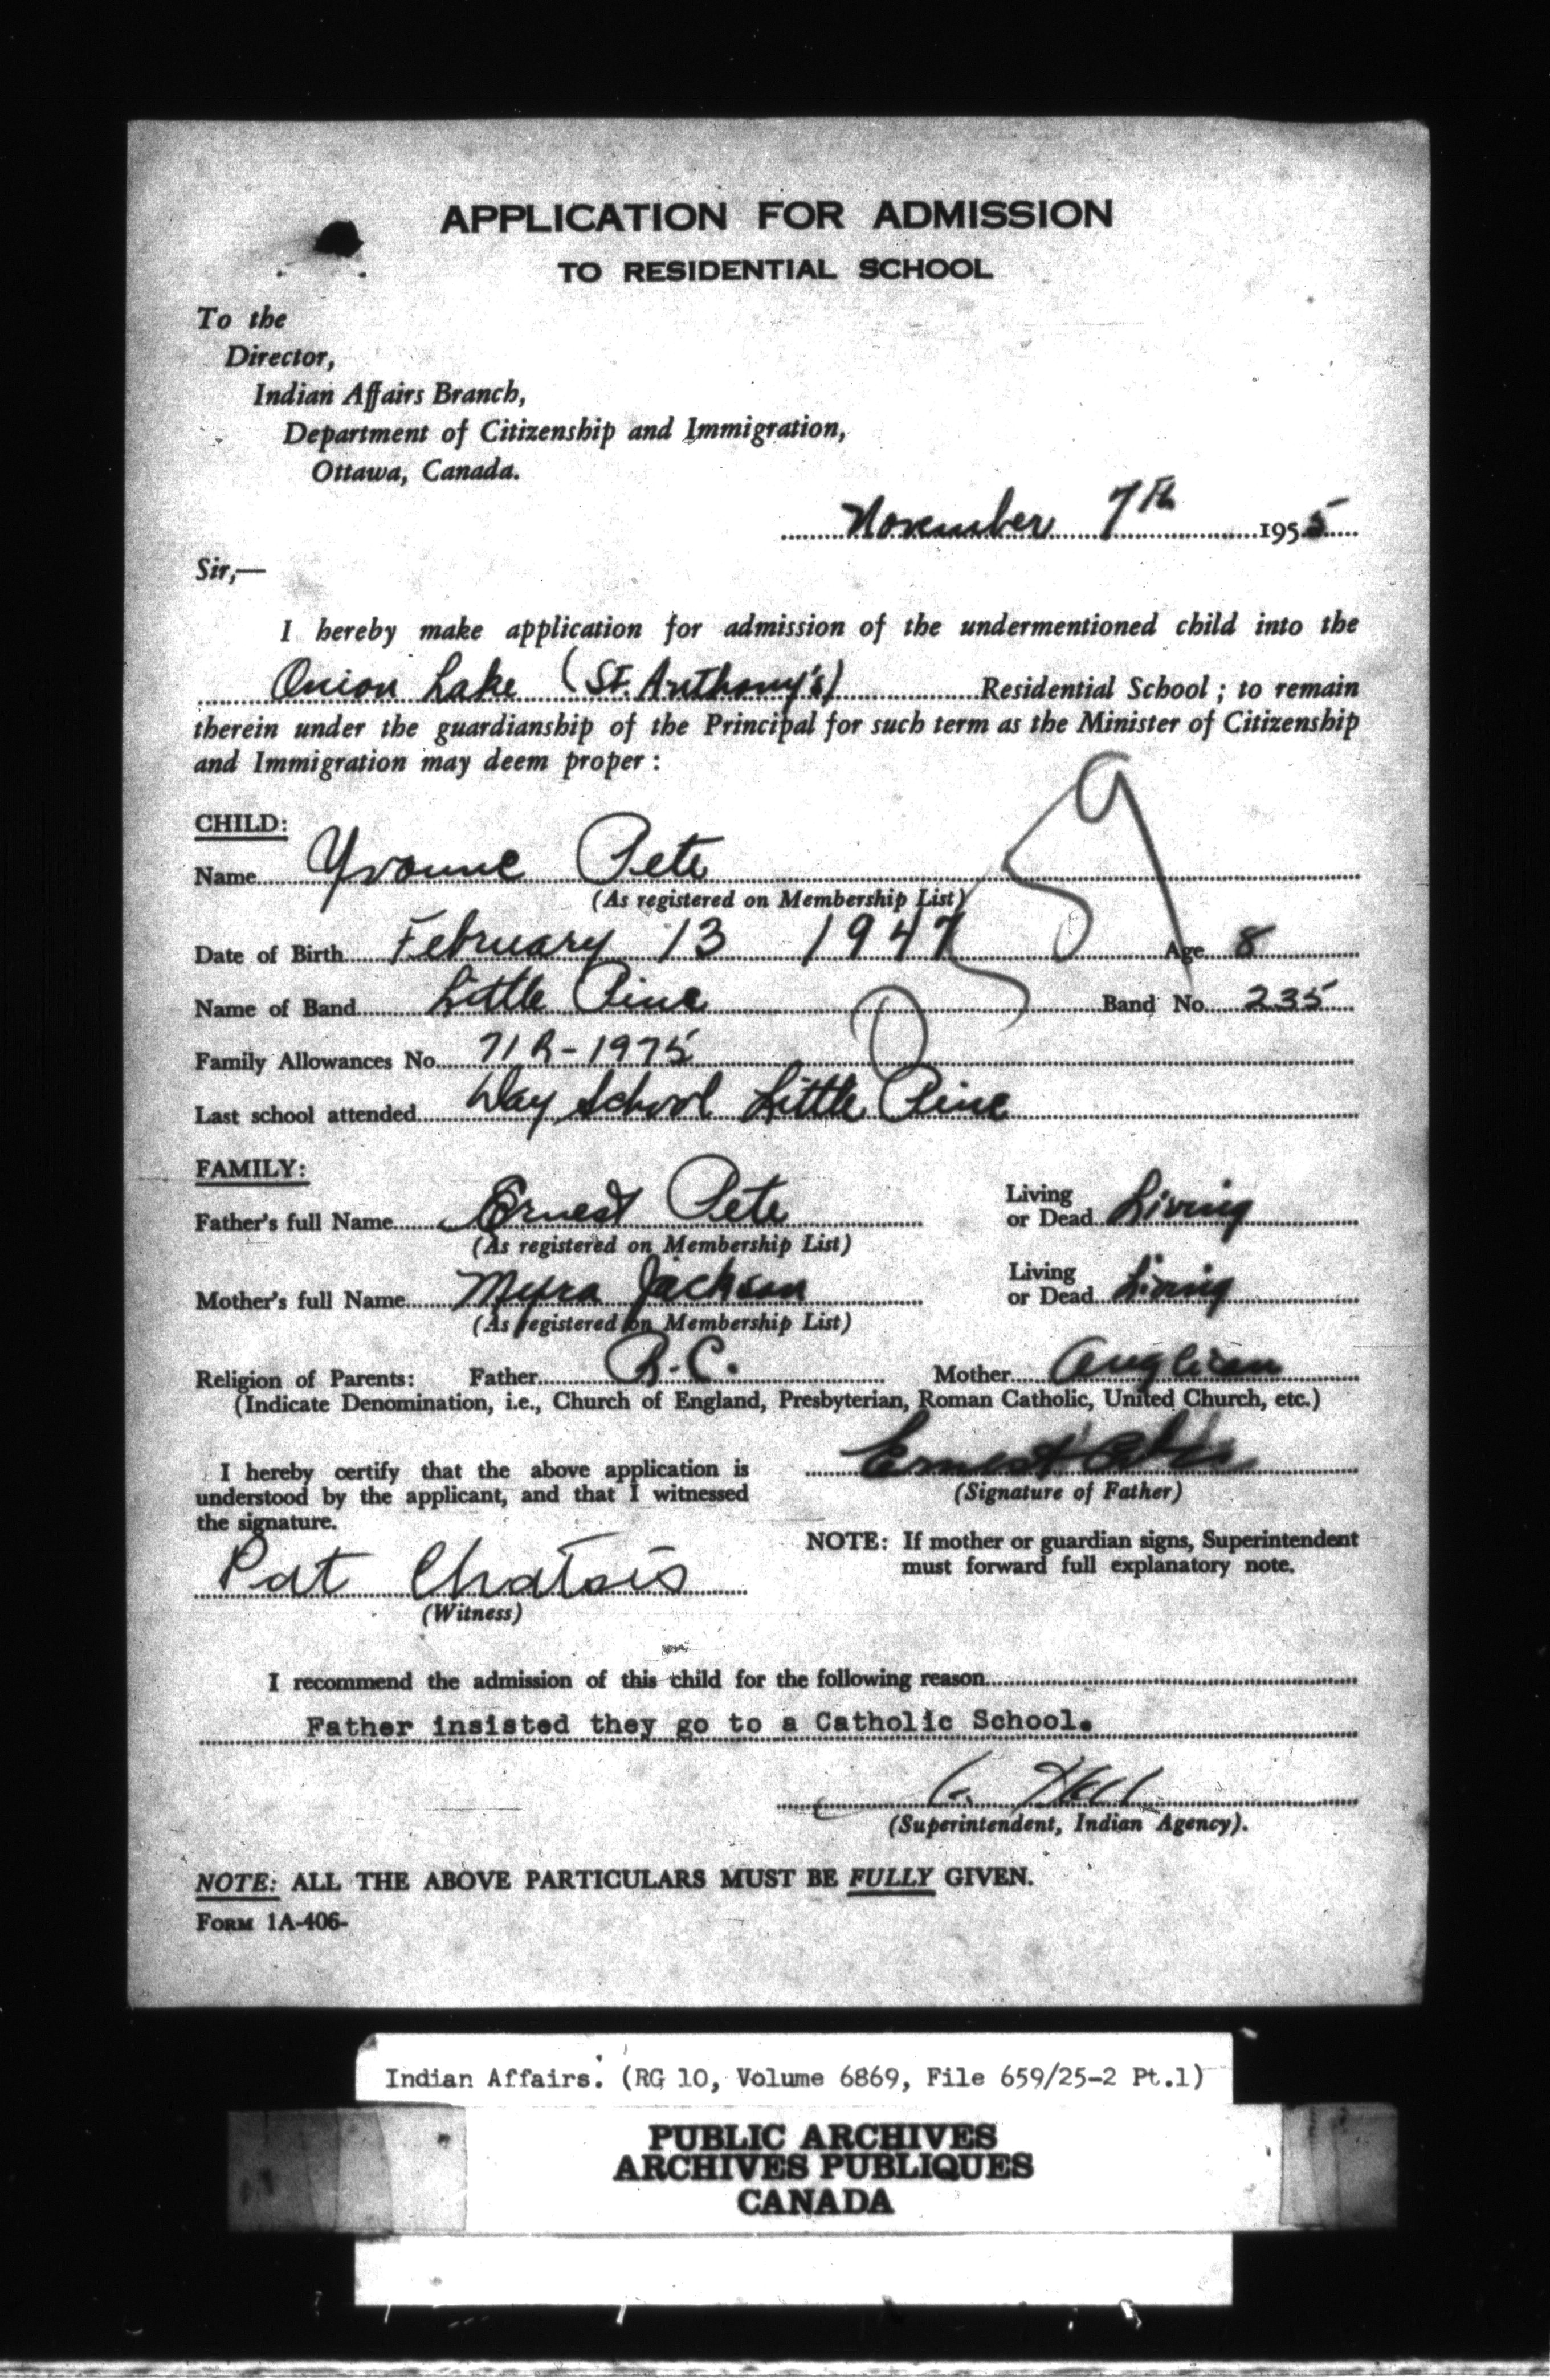 APPLICATION FOR ADMISSION
TO RESIDENTIAL SCHOOL
To the
Director,
Indian Affairs Branch,
Department of Citizenship and Immigration,
Ottawa, Canada.
November 7th 1955
Sir,—
I hereby make application for admission of the undermentioned child into the
Onion Lake (St. Anthony's) Residential School ; to remain
therein under the guardianship of the Principal for such term as the Minister of Citizenship
and Immigration may deem proper :
CHILD:
Name Yvonne Pete
(As registered on Membership List)
Date of Birth February 13 1947 Age 8
Name of Band Little Pine Band No. 235
Family Allowances No. 71R-1975
Last school attended Day School Little Pine
FAMILY:
Father's full Name Ernest Pete Living or Dead Living
(As registered on Membership List)
Mother's full Name Myra Jackson Living or Dead Living
(As registered on Membership List)
Religion of Parents: Father R.C. Mother Anglican
(Indicate Denomination, i.e., Church of England, Presbyterian, Roman Catholic, United Church, etc.)
Ernest Pete
(Signature of Father)
I hereby certify that the above application is
understood by the applicant, and that I witnessed
the signature.
NOTE: If mother or guardian signs, Superintendent
must forward full explanatory note.
Pat Chatois
(Witness)
I recommend the admission of this child for the following reason
Father insisted they go to a Catholic School.
(Superintendent, Indian Agency).
NOTE: ALL THE ABOVE PARTICULARS MUST BE FULLY GIVEN.
FORM 1A-406-
Indian Affairs. (RG 10, Volume 6869, File 659/25-2 Pt.1)
PUBLIC ARCHIVES
ARCHIVES PUBLIQUES
CANADA